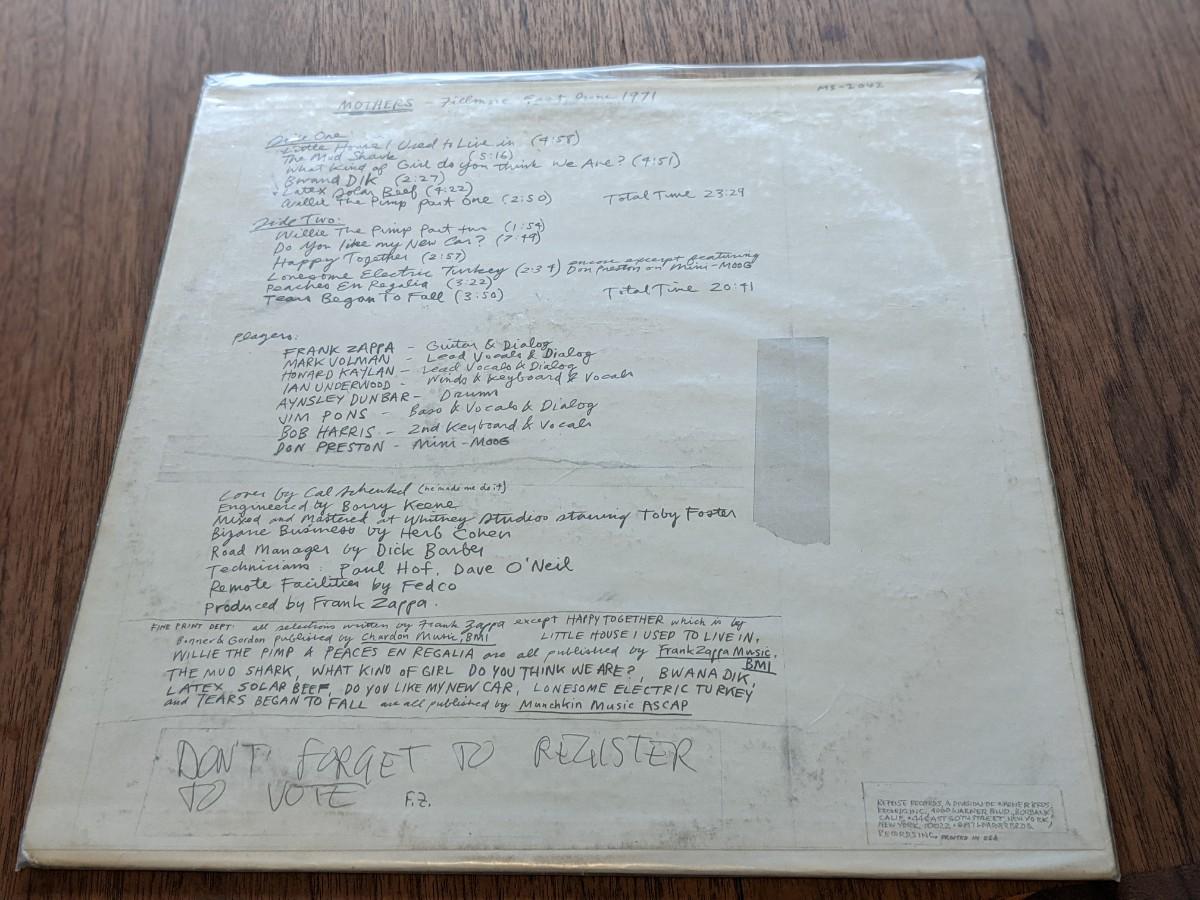 MOTHERS – Fillmore East, June 1971
MS-2042
Side One:
Little House I Used to Live in (4:58)
The Mud Shark (5:16)
What Kind of Girl do you think we Are? (4:51)
Bwana DIK (2:27)
Latex Solar Beef (4:22)
Willie The Pimp Part One (2:50) Total Time 23:29
Side Two:
Willie The Pimp Part two (1:54)
Do You like my New Car? (7:49)
Happy Together (2:57)
Lonesome Electric Turkey (2:34) encore excerpt featuring Don Preston on Mini-MOOG
Peaches En Regalia (3:22)
Tears Began To Fall (3:50) Total Time 20:41
Players:
FRANK ZAPPA – Guitar & Dialog
MARK VOLMAN – Lead Vocals & Dialog
HOWARD KAYLAN – Lead Vocals & Dialog
IAN UNDERWOOD – Winds & Keyboard & Vocals
AYNSLEY DUNBAR – Drums
JIM PONS – Bass & Vocals & Dialog
BOB HARRIS – 2nd Keyboard & Vocals
DON PRESTON – Mini-MOOG
Cover by Cal Schenkel (he made me do it)
Engineered by Barry Keene
Mixed and Mastered at Whitney Studios starring Toby Foster
Bizarre Business by Herb Cohen
Road Manager by Dick Barber
Technicians: Paul Hof, Dave O'Neil
Remote Facilities by Fedco
Produced by Frank Zappa.
FINE PRINT DEPT: all selections written by Frank Zappa except HAPPY TOGETHER which is by
Bonner & Gordon published by Chardon Music, BMI LITTLE HOUSE I USED TO LIVE IN,
WILLIE THE PIMP & PEACES EN REGALIA are all published by Frank Zappa Music, BMI
THE MUD SHARK, WHAT KIND OF GIRL DO YOU THINK WE ARE?, BWANA DIK,
LATEX SOLAR BEEF, DO YOU LIKE MY NEW CAR, LONESOME ELECTRIC TURKEY
and TEARS BEGAN TO FALL are all published by Munchkin Music ASCAP
DON'T FORGET TO REGISTER
TO VOTE F.Z.
REPRISE RECORDS, A DIVISION OF WARNER BROS.
RECORDS INC., 4000 WARNER BLVD., BURBANK,
CALIF. • 44 EAST 50TH STREET, NEW YORK,
NEW YORK 10022 • ©1971 WARNER BROS.
RECORDS INC. PRINTED IN USA